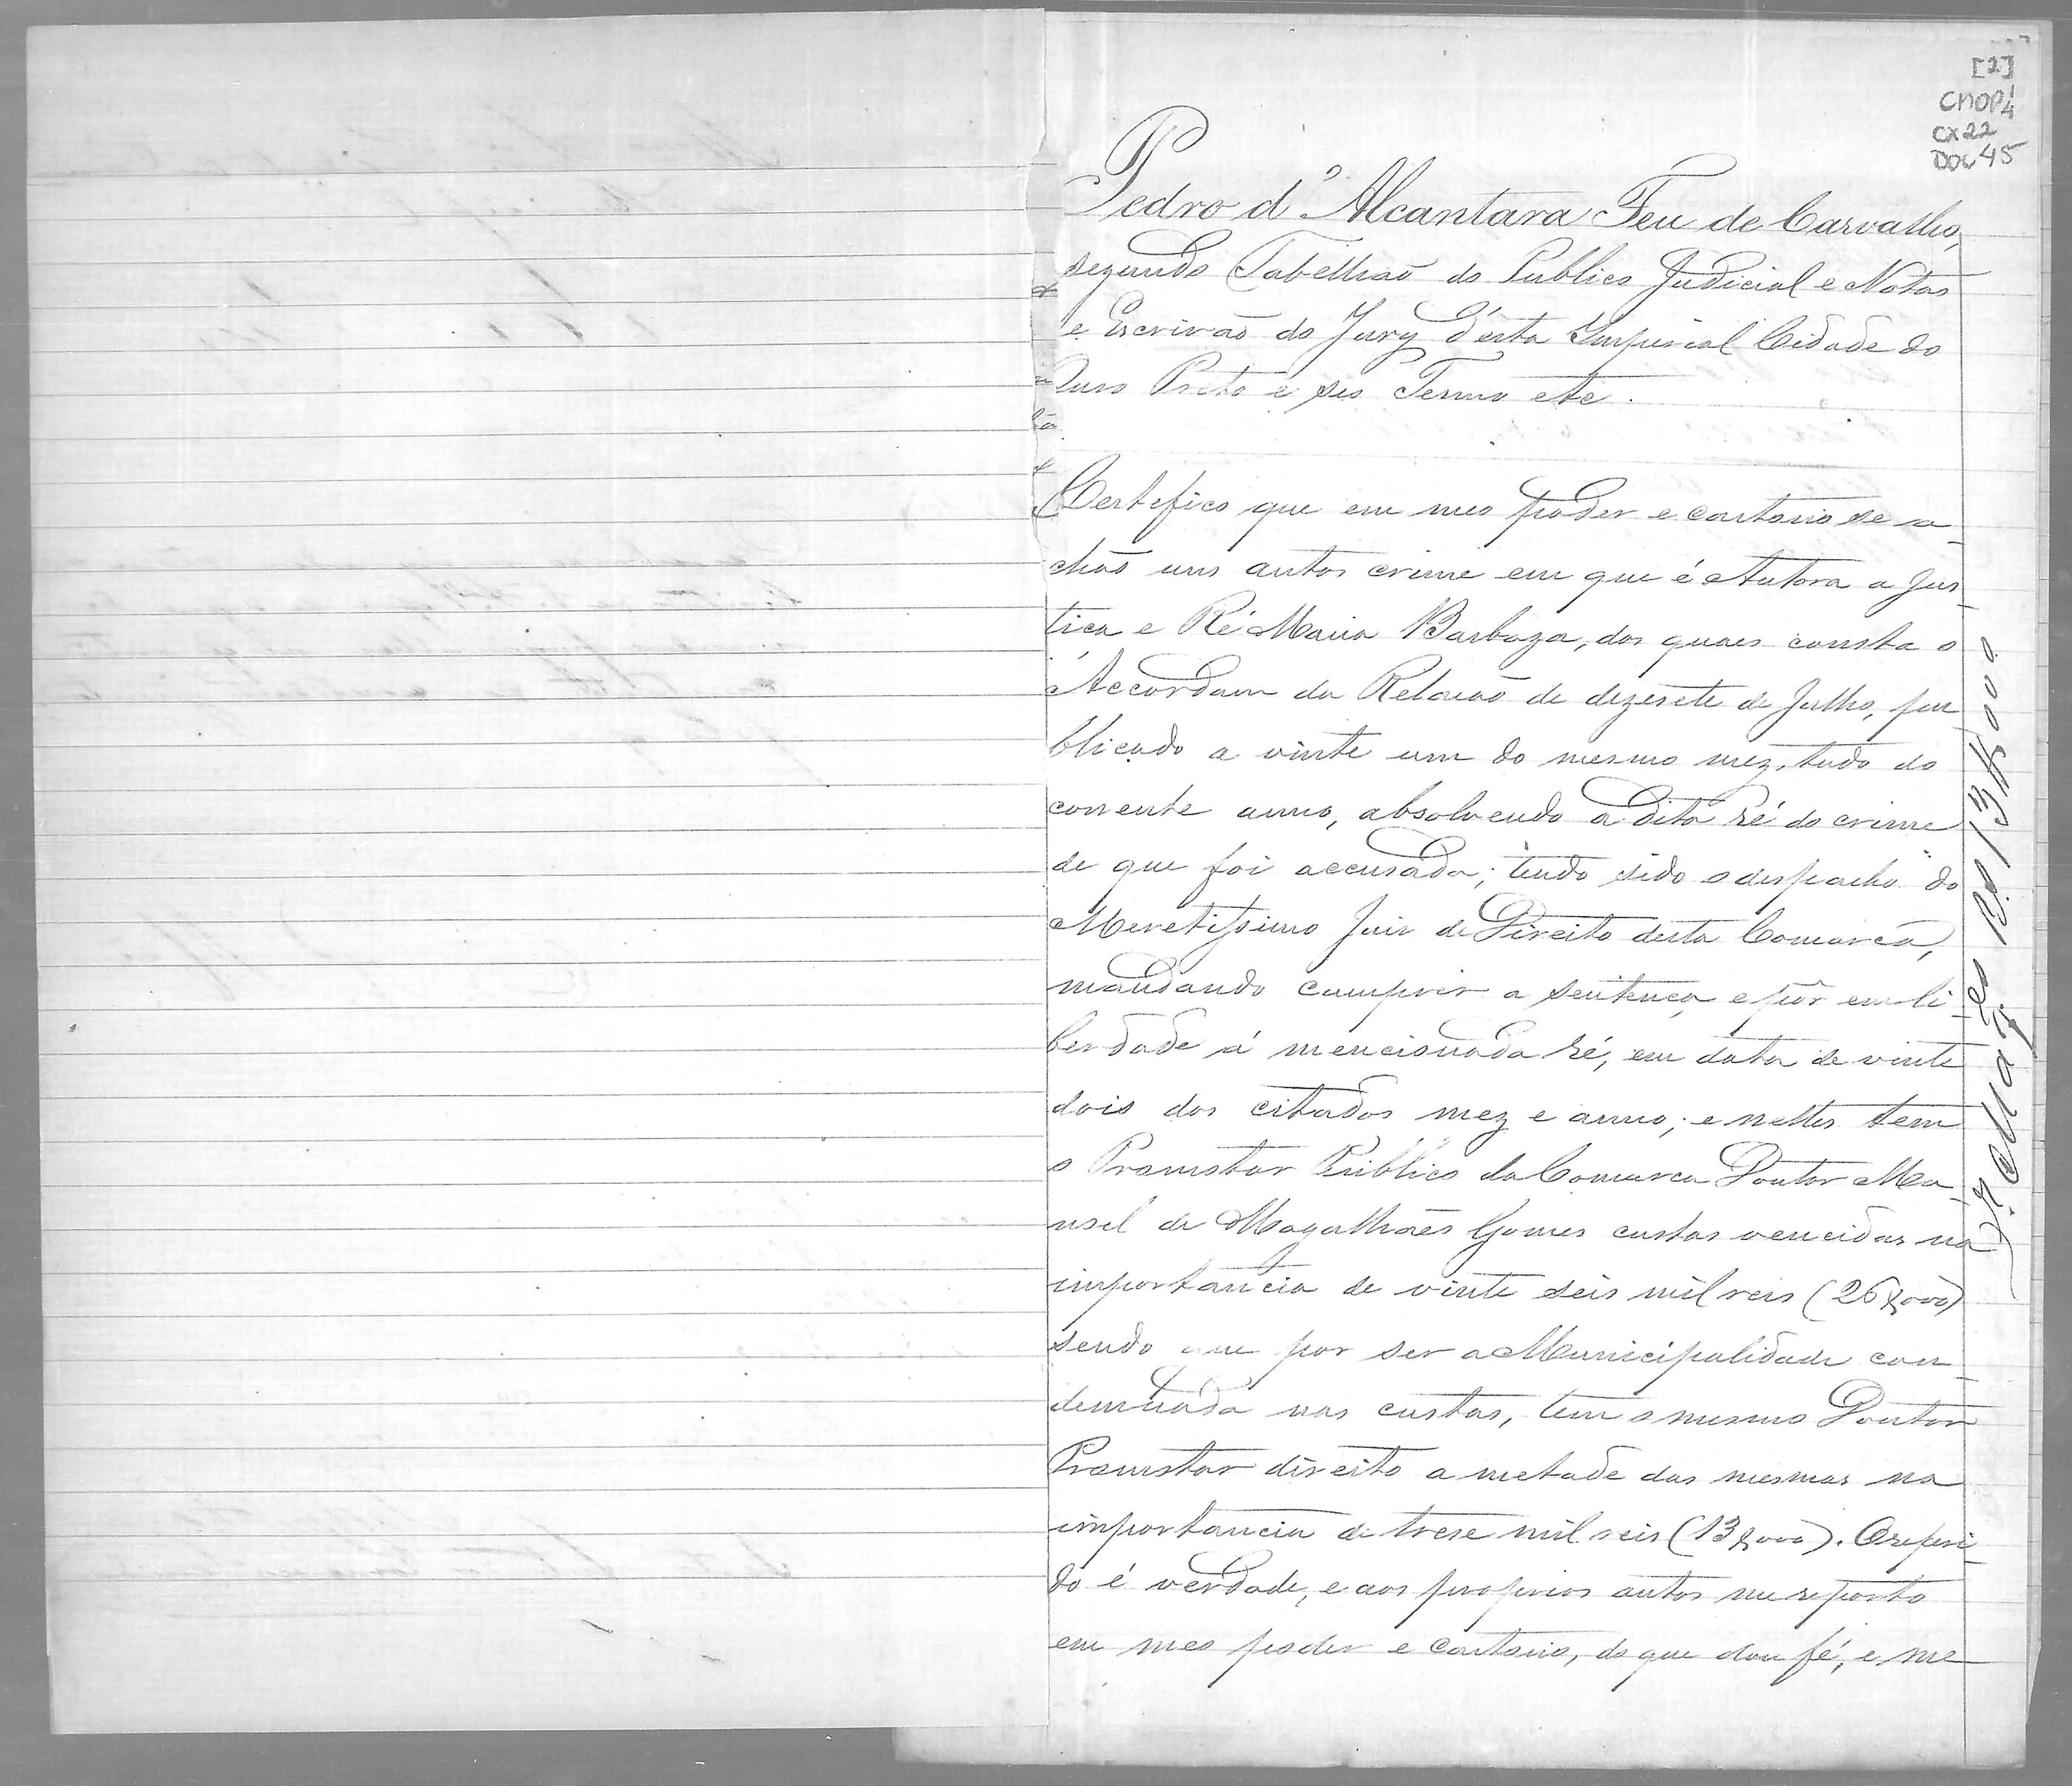 [2]
CMOP 1/4
CX22
DOC 45
Pedro d'Alcantara Feu de Carvalho,
segundo Tabelliaõ do Publico Judicial e Notas
e Escrivaõ do Jury d'esta Imperial Cidade do
Ouro Preto e seo Termo etc.
Certefico que em meo poder e cartorio se a-
chaõ uns autos crime em que é Autora a Jus-
tiça e Ré Maria Barboza, dos quaes consta o
Accordam da Relacaõ de dezesete de Julho, pu-
blicado a vinte um do mesmo mez, tudo do
corrente anno, absolvendo a dita ré do crime
de que foi accusada; tendo sido o despacho do
Meretissimo Juis de Direito desta Comarca,
mandando cumprir a sentença e pôr em li-
berdade á mencionada ré, em data de vinte
dois dos citados mez e anno; e nelles tem
o Promotor Publico da Comarca Doutor Ma-
noel de Magalhães Gomes custas vencidas na
importancia de vinte seis mil reis (26$000)
sendo que por ser a Municipalidade con-
demnada nas custas, tem o mesmo Doutor
Promotor direito a metade das mesmas na
importancia de trese mil reis (13$000). O referi-
do é verdade, e aos proprios autos me reporto
em meo poder e cartorio, do que dou fé, e me
R.s 13$000